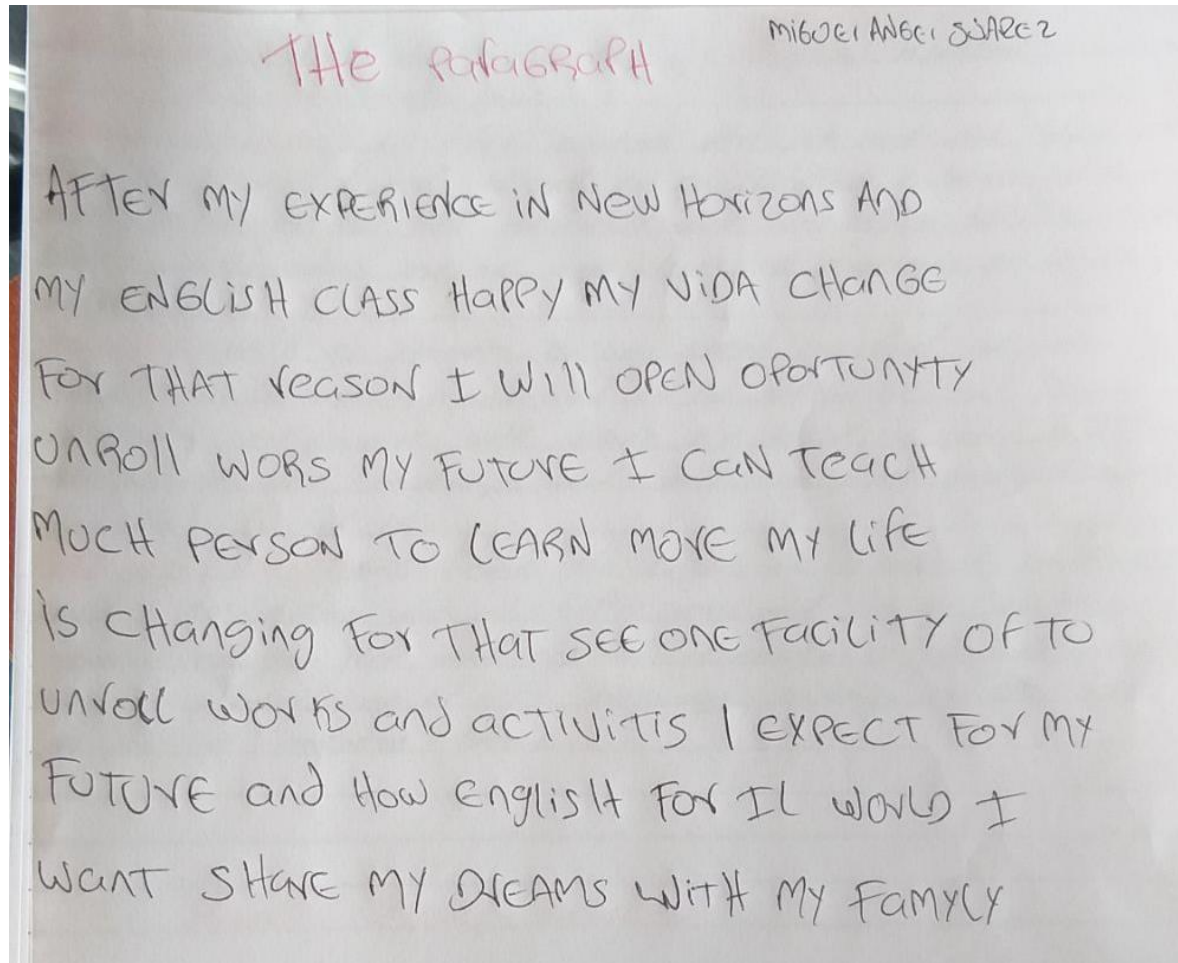 MIGUEl ANGEl SUAREZ
THe PaRaGRaPH
AFTEr MY EXPERIENCE iN NEW HorizoNs AND
MY ENGLiSH ClASS HaPPY MY ViDA CHaNGE
For THAT reaSON I Will OPEN OPorTUNYTY
UNROll WORS MY FUTUrE I CaN TeacH
MUCH PErSON TO LEARN MOrE MY LifE
iS CHanging For THaT SEE ONE FaciLiTY OF TO
UNroll WorKs and acTiViTiS I EXPECT For MY
FUTUrE and How EnglisH For IL WorLD I
WanT SHarE MY DrEAMS WiTH MY FaMYLY